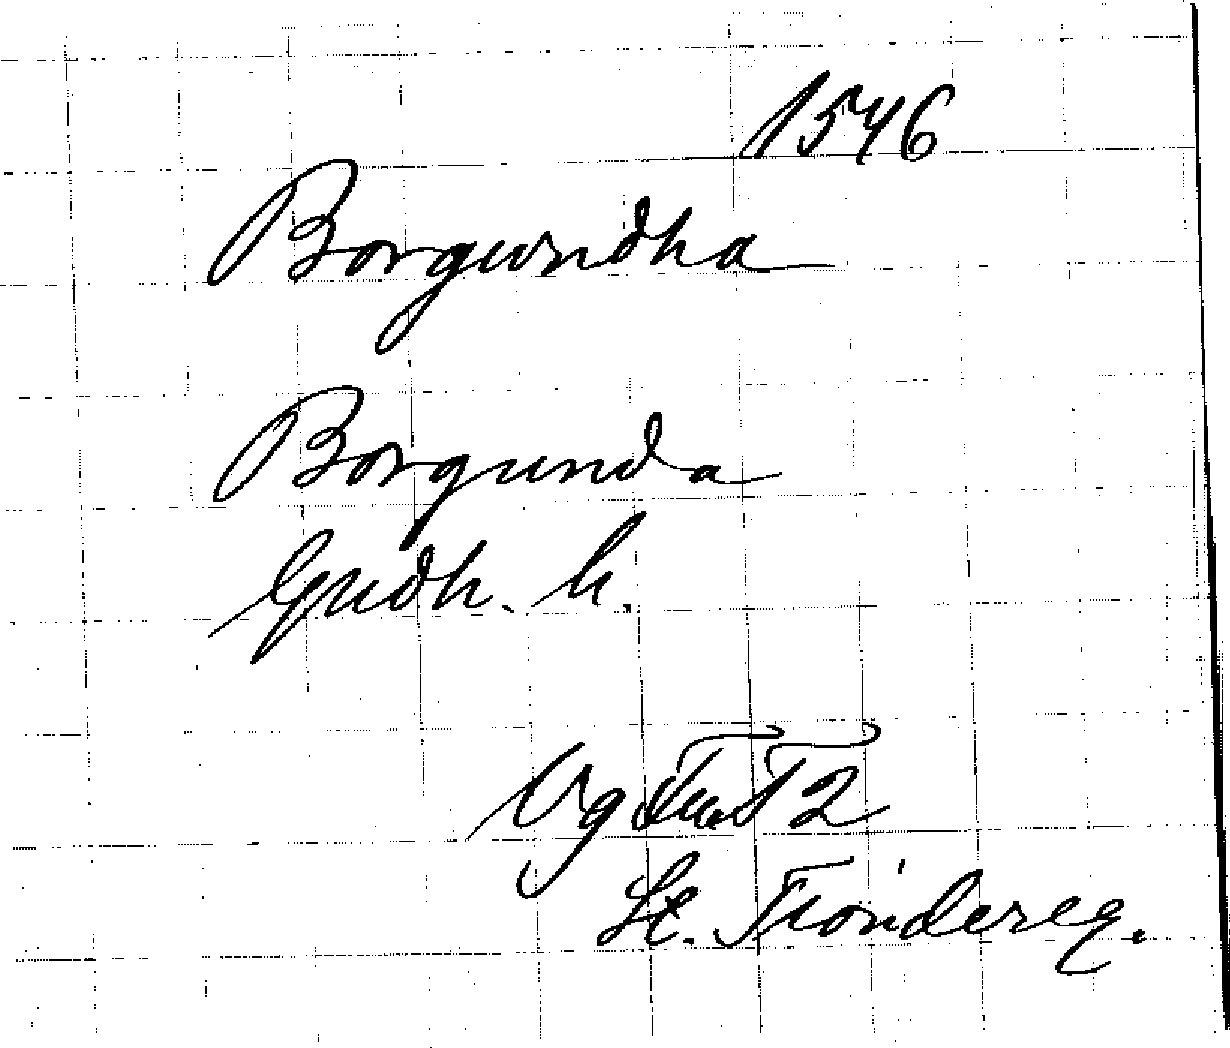 1546
Borgundha
Borgunda
Gudh. h.
Vg Tr. T 2
St. Tiondereg.